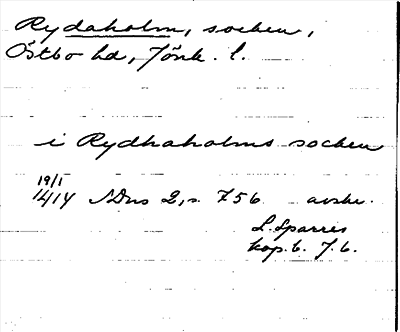 Rydaholm, socken,
Östbo hd, Jönk. l.
i Rydhaholms socken
19/1
1414 SDns 2, s. 756 avskr.
L. Sparres
kop. b. f. 6.